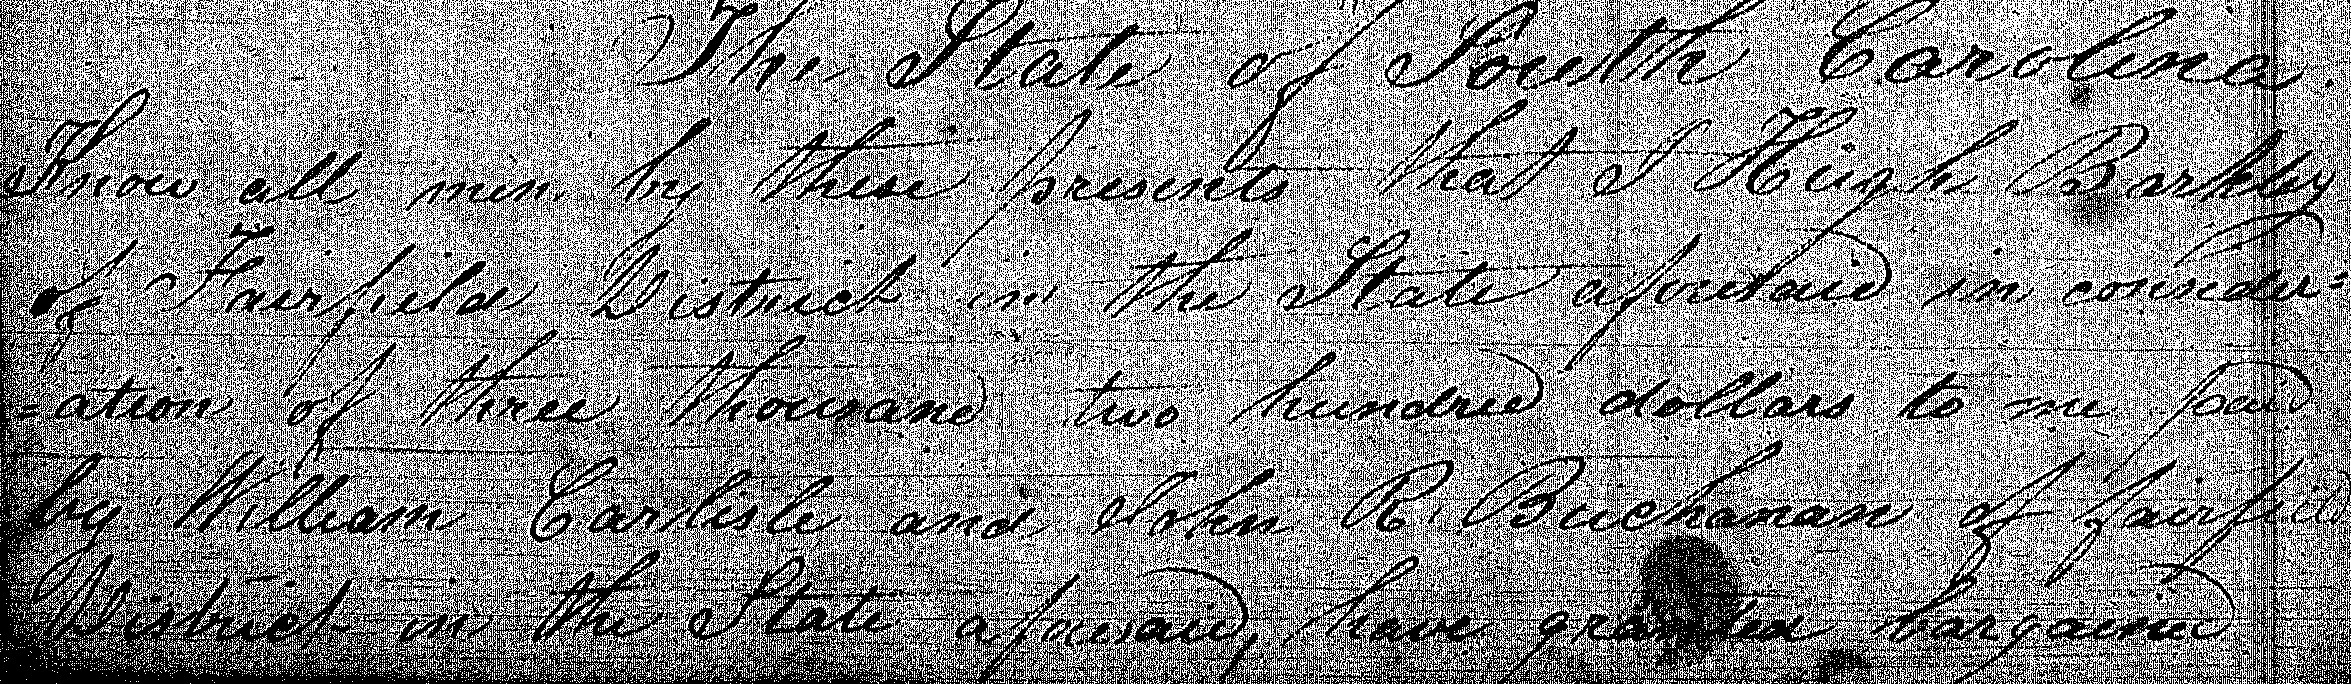 The State of South Carolina.
Know all men by these presents that I Hugh Barkley
of Fairfield District in the State aforesaid in consider=
=ation of three thousand two hundred dollars to me paid
by William Carlisle and John R. Buchanan of Fairfield
District in the State aforesaid, have granted bargained